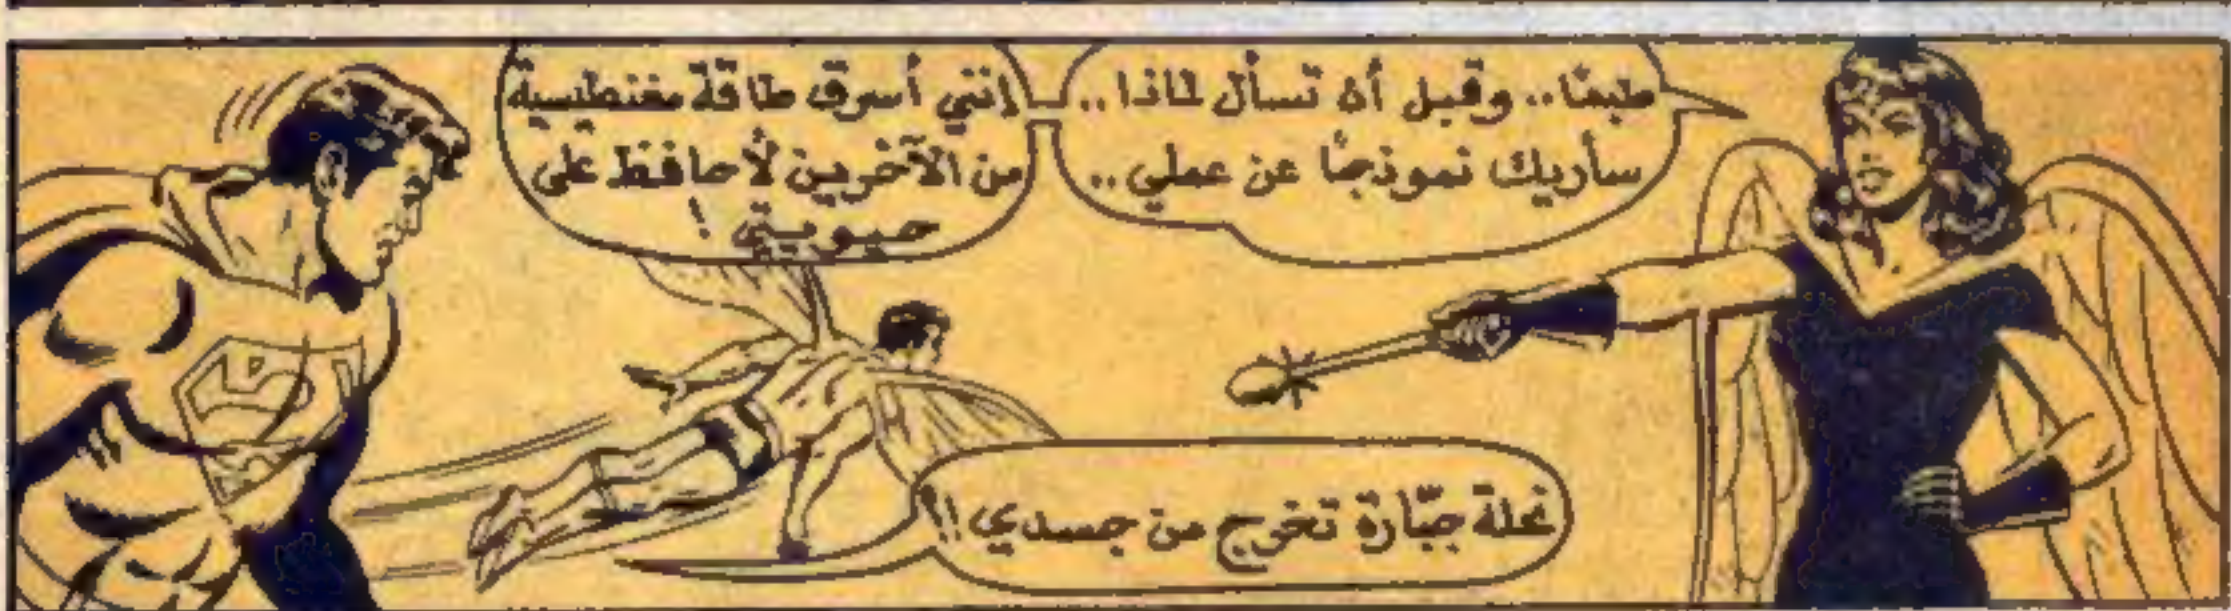 طبعًا.. وقبل أن تسأل لماذا..
سأريك نموذجًا عن عملي..
إنني أسرق طاقة مغنطيسية
من الآخرين لأحافظ على
حيويتي !
نحلة جبّارة تخرج من جسدي !!